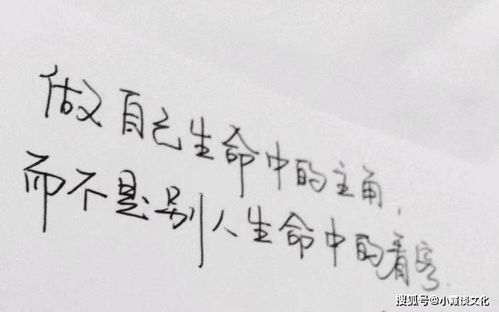 做自己生命中的主角，
而不是别人生命中的看客.
搜狐号@小霞谈文化